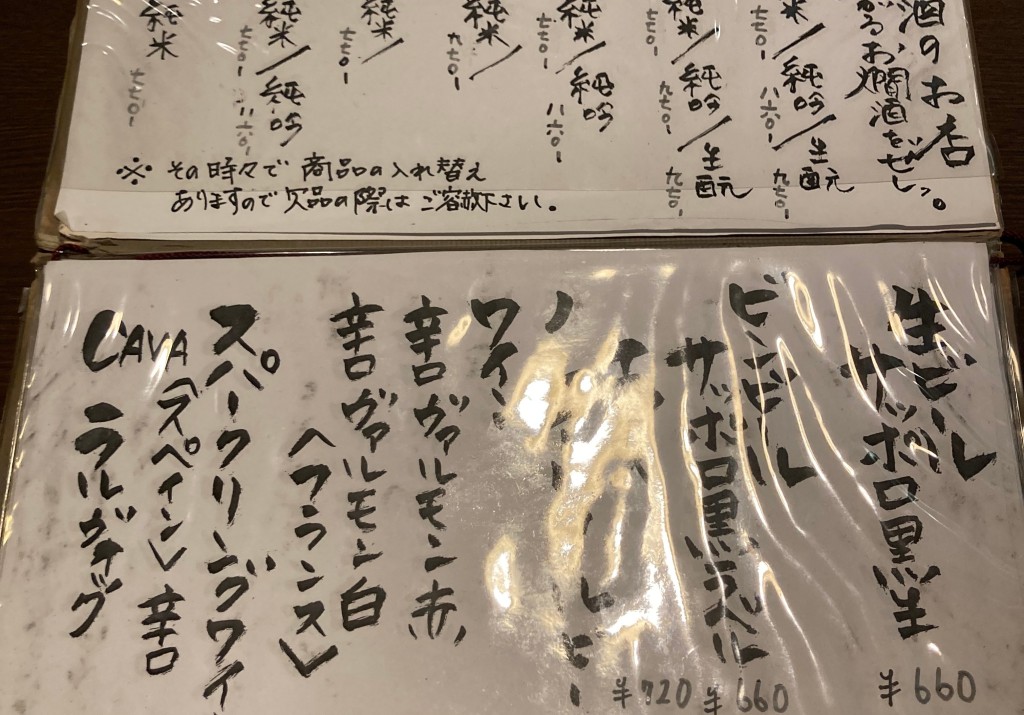 酒のお店
がるお燗酒をぜひ。
純米/純吟/生酛
七七〇ー 八六〇ー 九七〇ー
純米/純吟/生酛
七七〇ー 九七〇ー 九七〇ー
純米/純吟
七七〇ー 八六〇ー
純米/
九七〇ー
純米/
七七〇ー
純米/純吟
七七〇ー 八六〇ー
純米
七七〇ー
※その時々で商品の入れ替え
ありますので欠品の際はご容赦下さい。
生ビール
サッポロ黒生
¥660
ビンビール
サッポロ黒ラベル
¥660
¥720
ワイン
辛口ヴァルモン赤
辛口ヴァルモン白
〈フランス〉
スパークリングワイ
CAVA〈スペイン〉辛口
ラルヴァグ